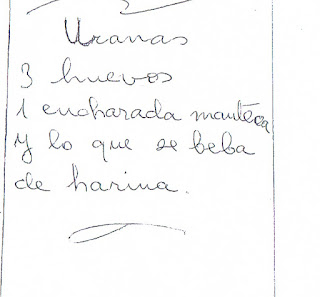 Uranas
3 huevos
1 cucharada manteca
y lo que se beba
de harina.